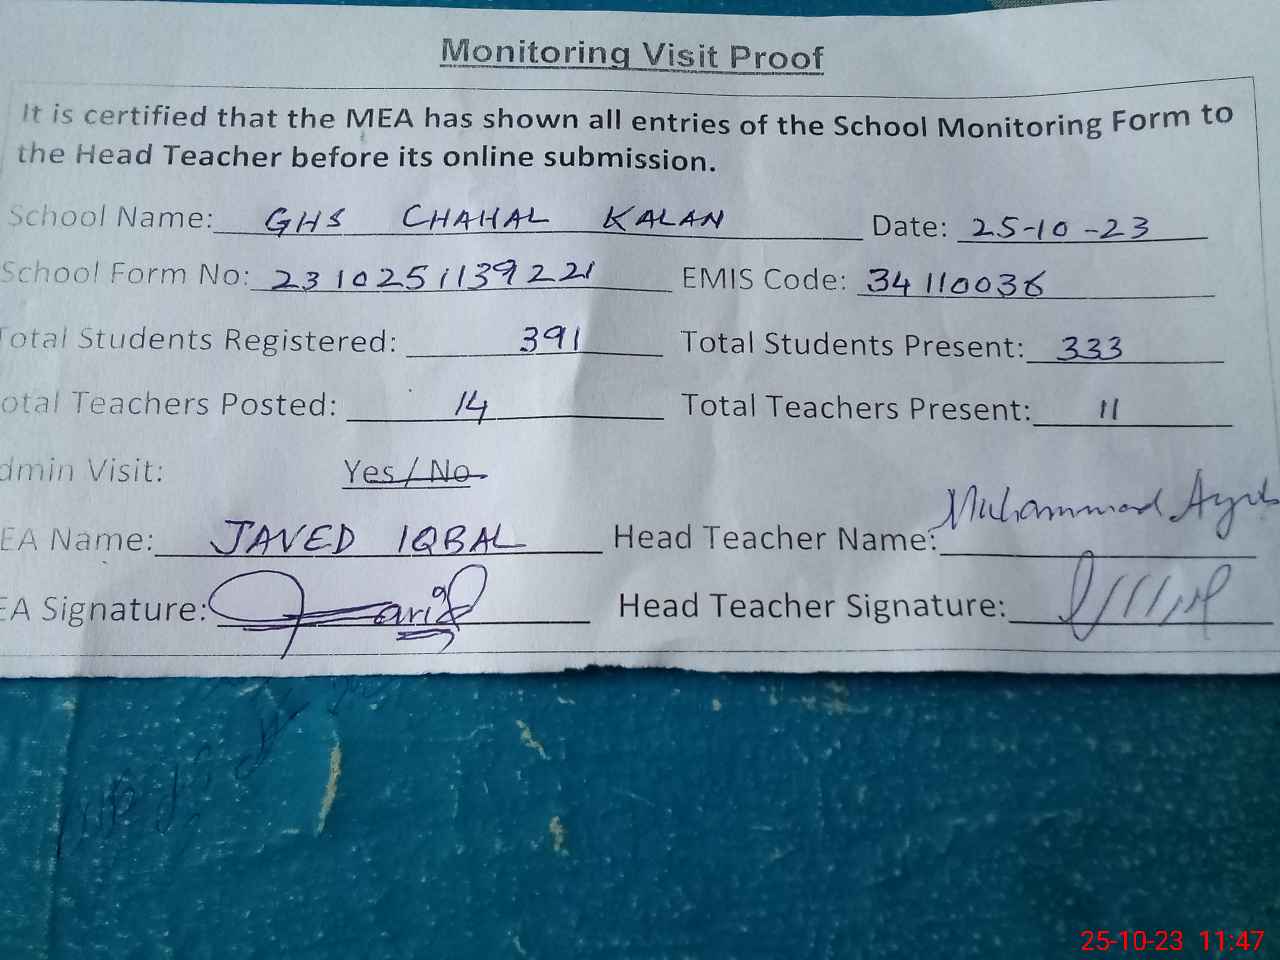 Monitoring Visit Proof
It is certified that the MEA has shown all entries of the School Monitoring Form to
the Head Teacher before its online submission.
School Name: GHS CHAHAL KALAN Date: 25-10-23
School Form No: 2310251139221 EMIS Code: 34110036
Total Students Registered: 391 Total Students Present: 333
otal Teachers Posted: 14 Total Teachers Present: 11
dmin Visit: Yes/No
EA Name: JAVED IQBAL Head Teacher Name: Muhammad
EA Signature: Head Teacher Signature:
25-10-23 11:47